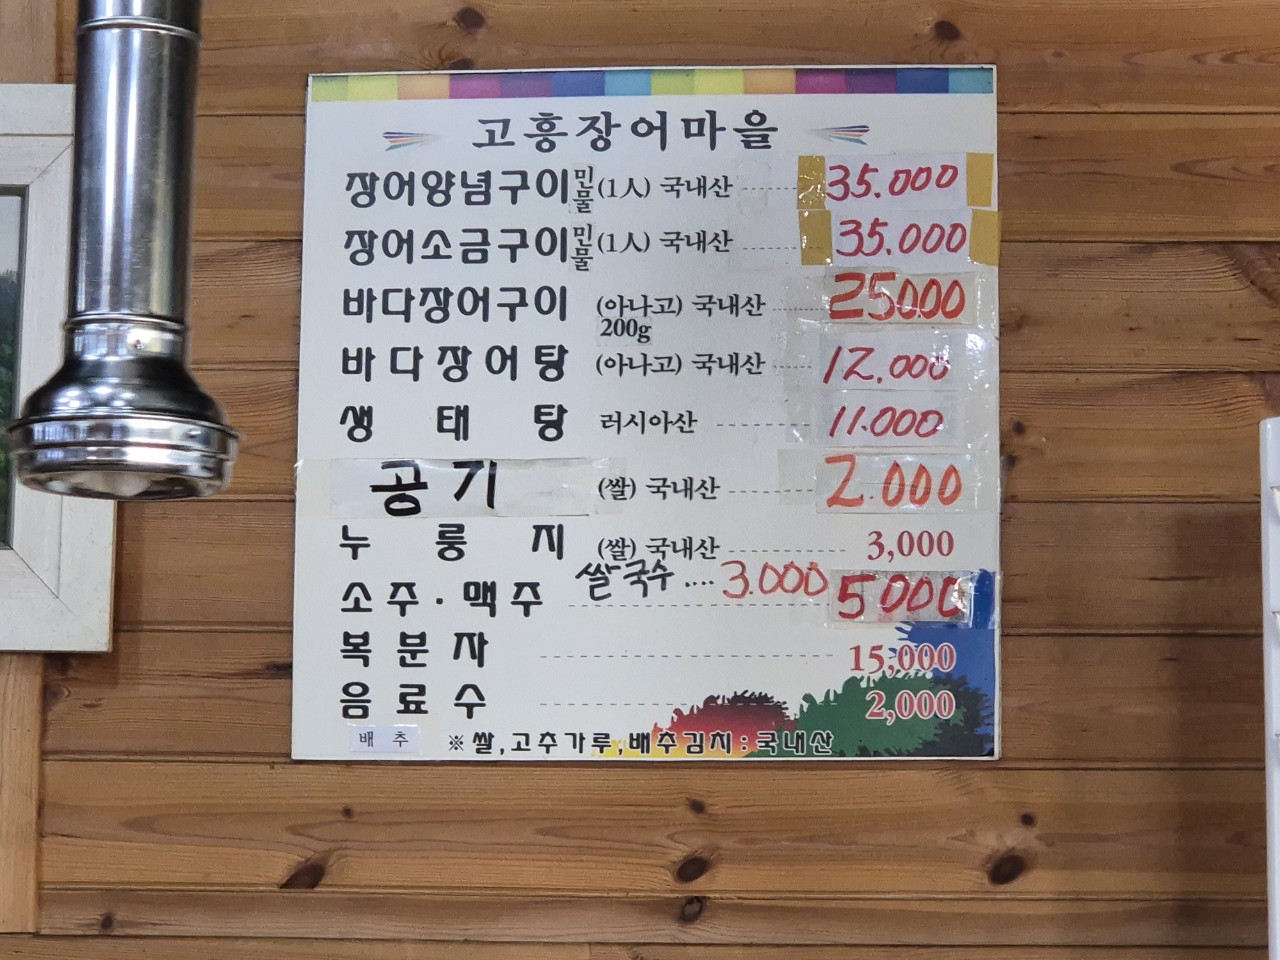 고흥장어마을
장어양념구이 민물 (1人) 국내산 35.000
장어소금구이 민물 (1人) 국내산 35.000
바다장어구이 (아나고) 국내산 25000
200g
바다장어탕 (아나고) 국내산 12.000
생태탕 러시아산 11.000
공기 (쌀) 국내산 2.000
누룽지 (쌀) 국내산 3,000
쌀국수.... 3.000
소주·맥주 5000
복분자 15,000
음료수 2,000
배추 ※쌀,고추가루,배추김치:국내산